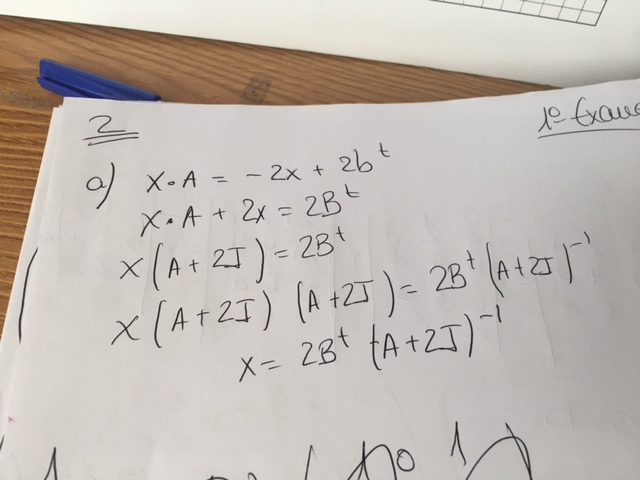 2
1º Exame
a) X · A = - 2x + 2b^t
X · A + 2x = 2B^t
X (A + 2I) = 2B^t
X (A + 2I) (A + 2I) = 2B^t (A + 2I)^-1
X = 2B^t (A + 2I)^-1